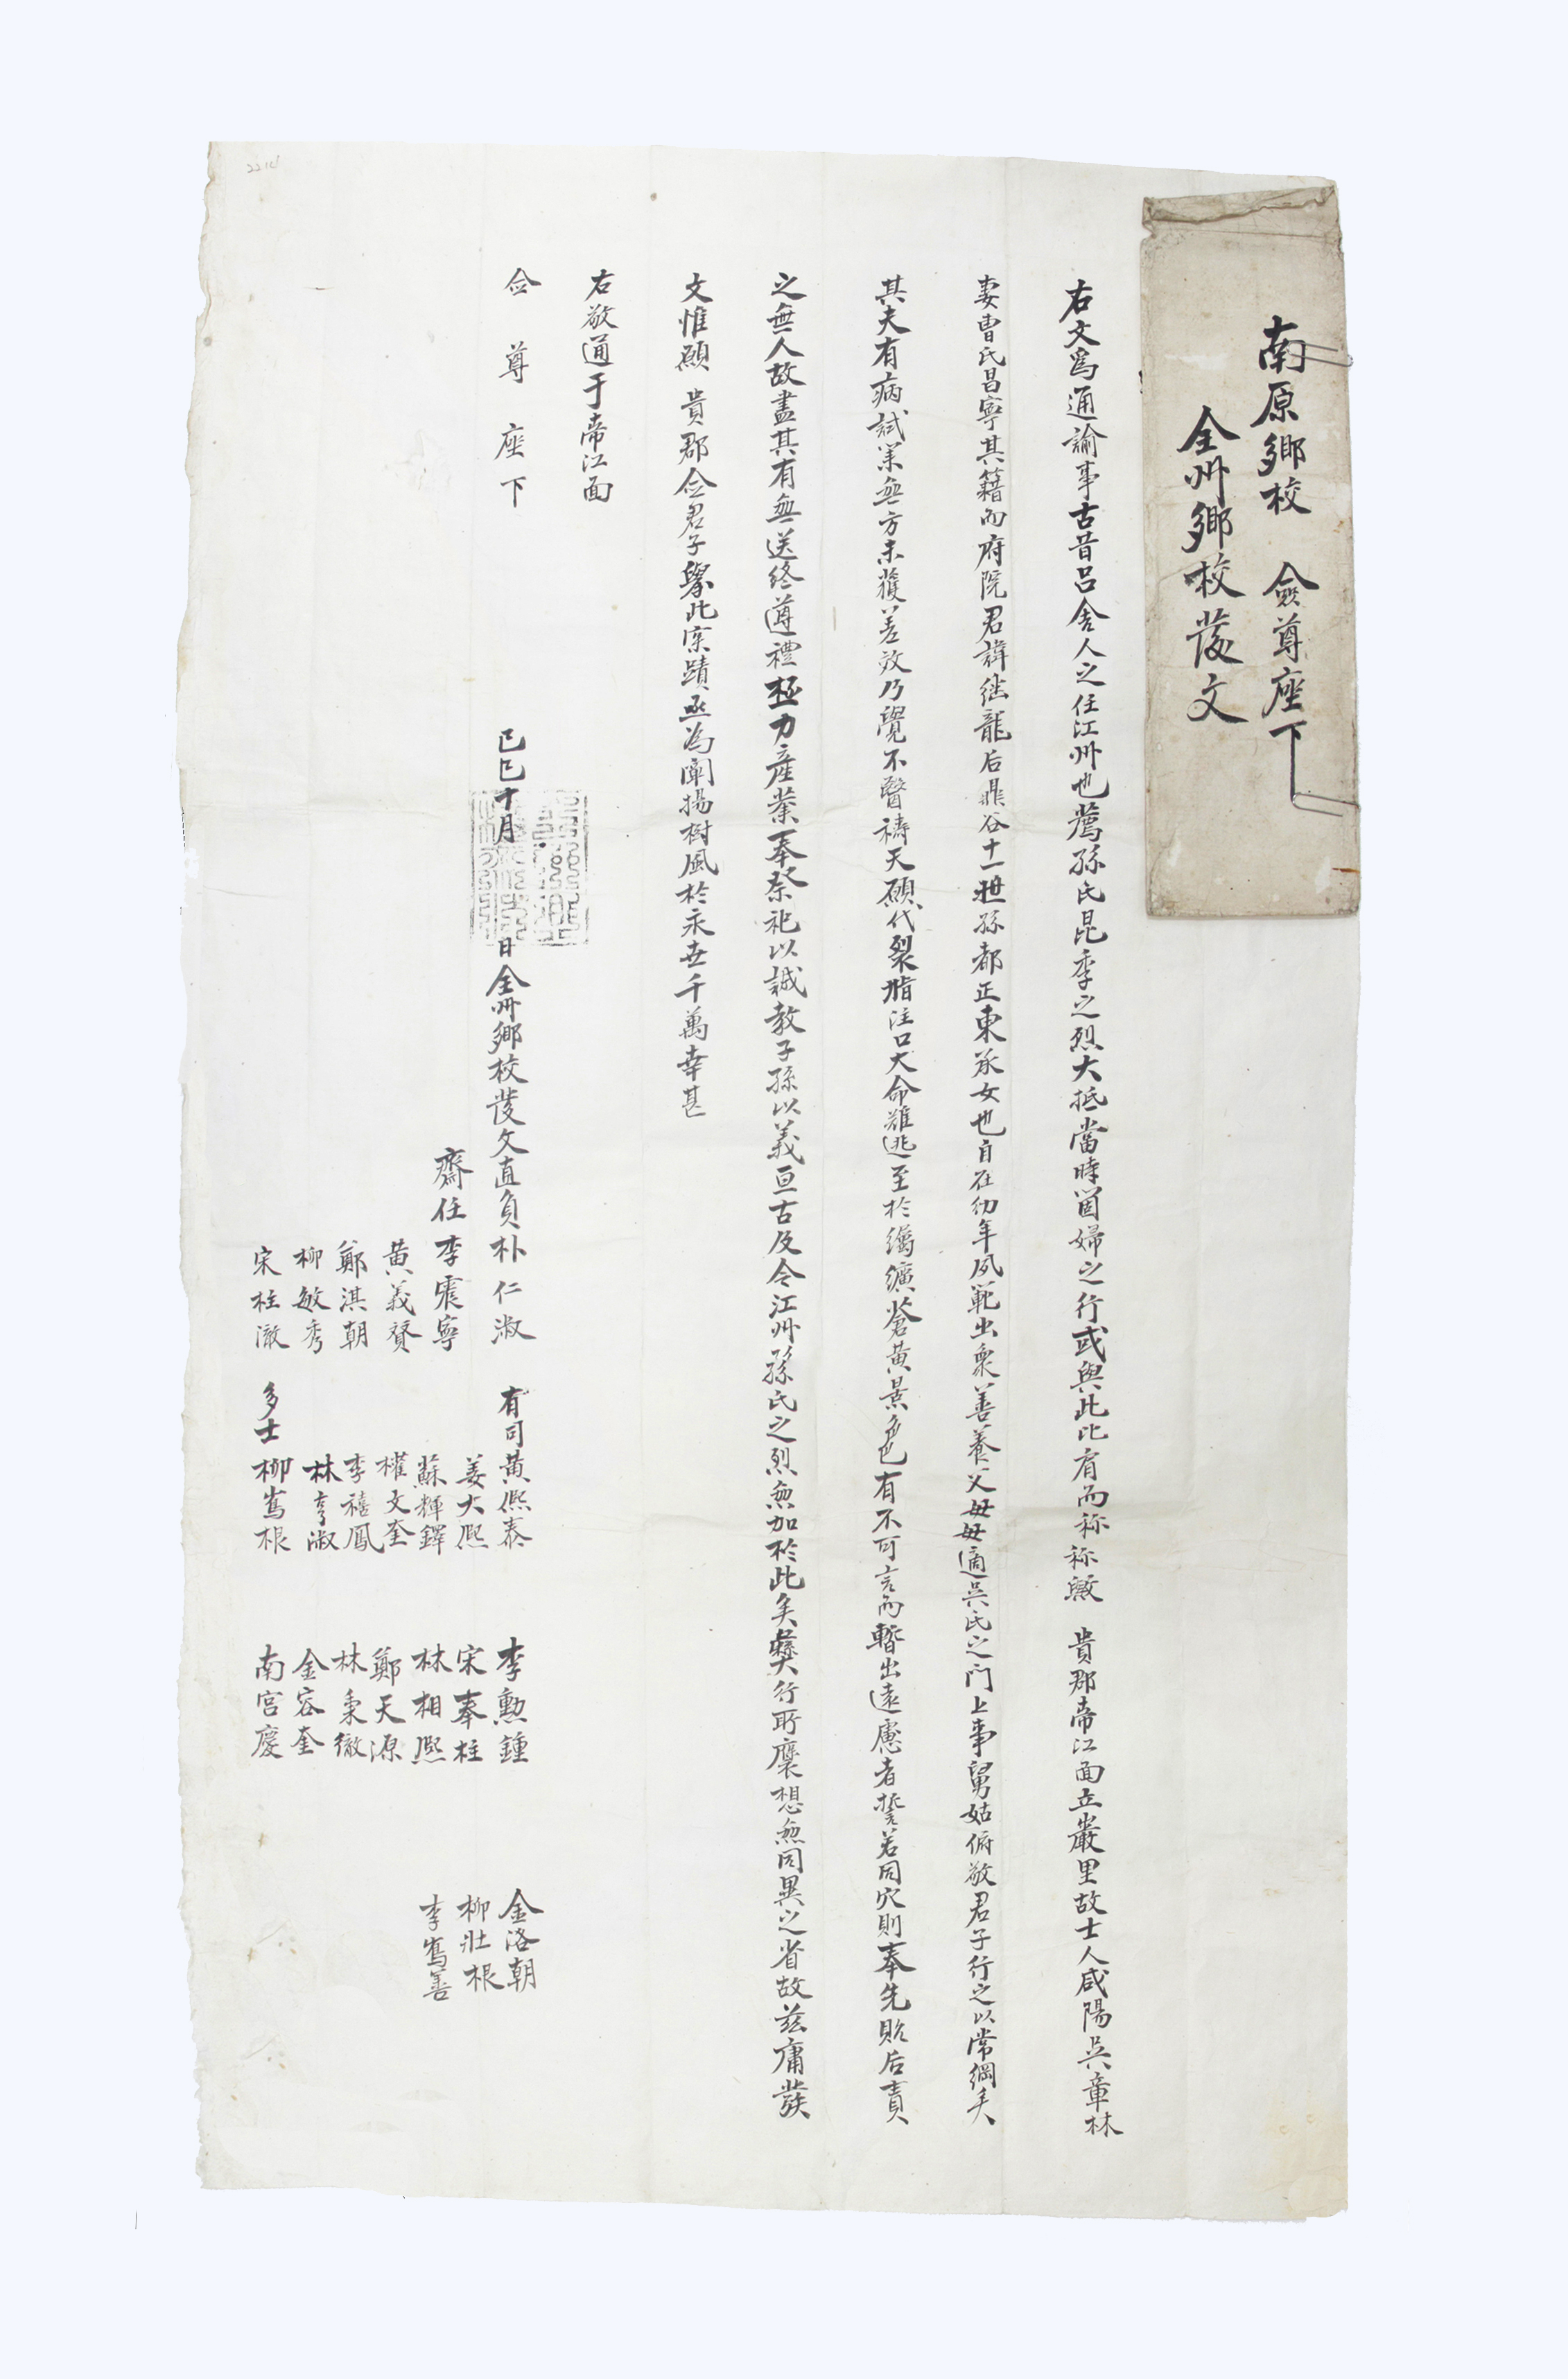 南原鄉校 僉尊座下
全州鄉校發文
右文爲通諭事古昔呂舍人之任江州也薦孫氏昆季之烈大抵當時箇婦之行或與此比肩而称称歟 貴郡帝江面立巖里故士人咸陽吳章林
妻曺氏昌寧其籍而府院君諱継龍后鼎谷十一世孫都正東承女也自在幼年夙範出衆善養父母母適吳氏之门上事舅姑俯敬君子行之以常綱矣
其夫有病試業無方未獲差效乃覺不醫禱天願代裂指注口大命難逃至於纊蒼黃景色有不可言而暫出遠慮者誓若同穴則奉先貽后責
之無人故盡其有無送終遵禮極力産業奉祭祀以誠教子孫以義亘古及今江州孫氏之烈愈加於此矣彛行所褒想無同異之省故玆庸發
文惟願 貴郡僉君子擧此實蹟亟爲闡揚樹風於永世千萬幸甚
右敬通于帝江面
僉尊座下
己巳十月 日全州鄉校發文直負朴仁淑 有司黃熙泰 李勲鍾 金洛朝
姜大熙 宋奉柱 柳壯根
齋任李震寧 蘇輝鐸 林相熙 李嵩善
黃義贇 權文奎 鄭天源
鄭淇朝 李禧鳳 林秉徹
柳敏秀 林亨淑 金容奎
宋柱澈 多士柳嵩根 南宮慶